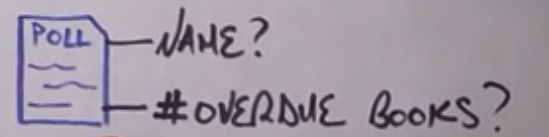 POLL
NAME?
#OVERDUE BOOKS?